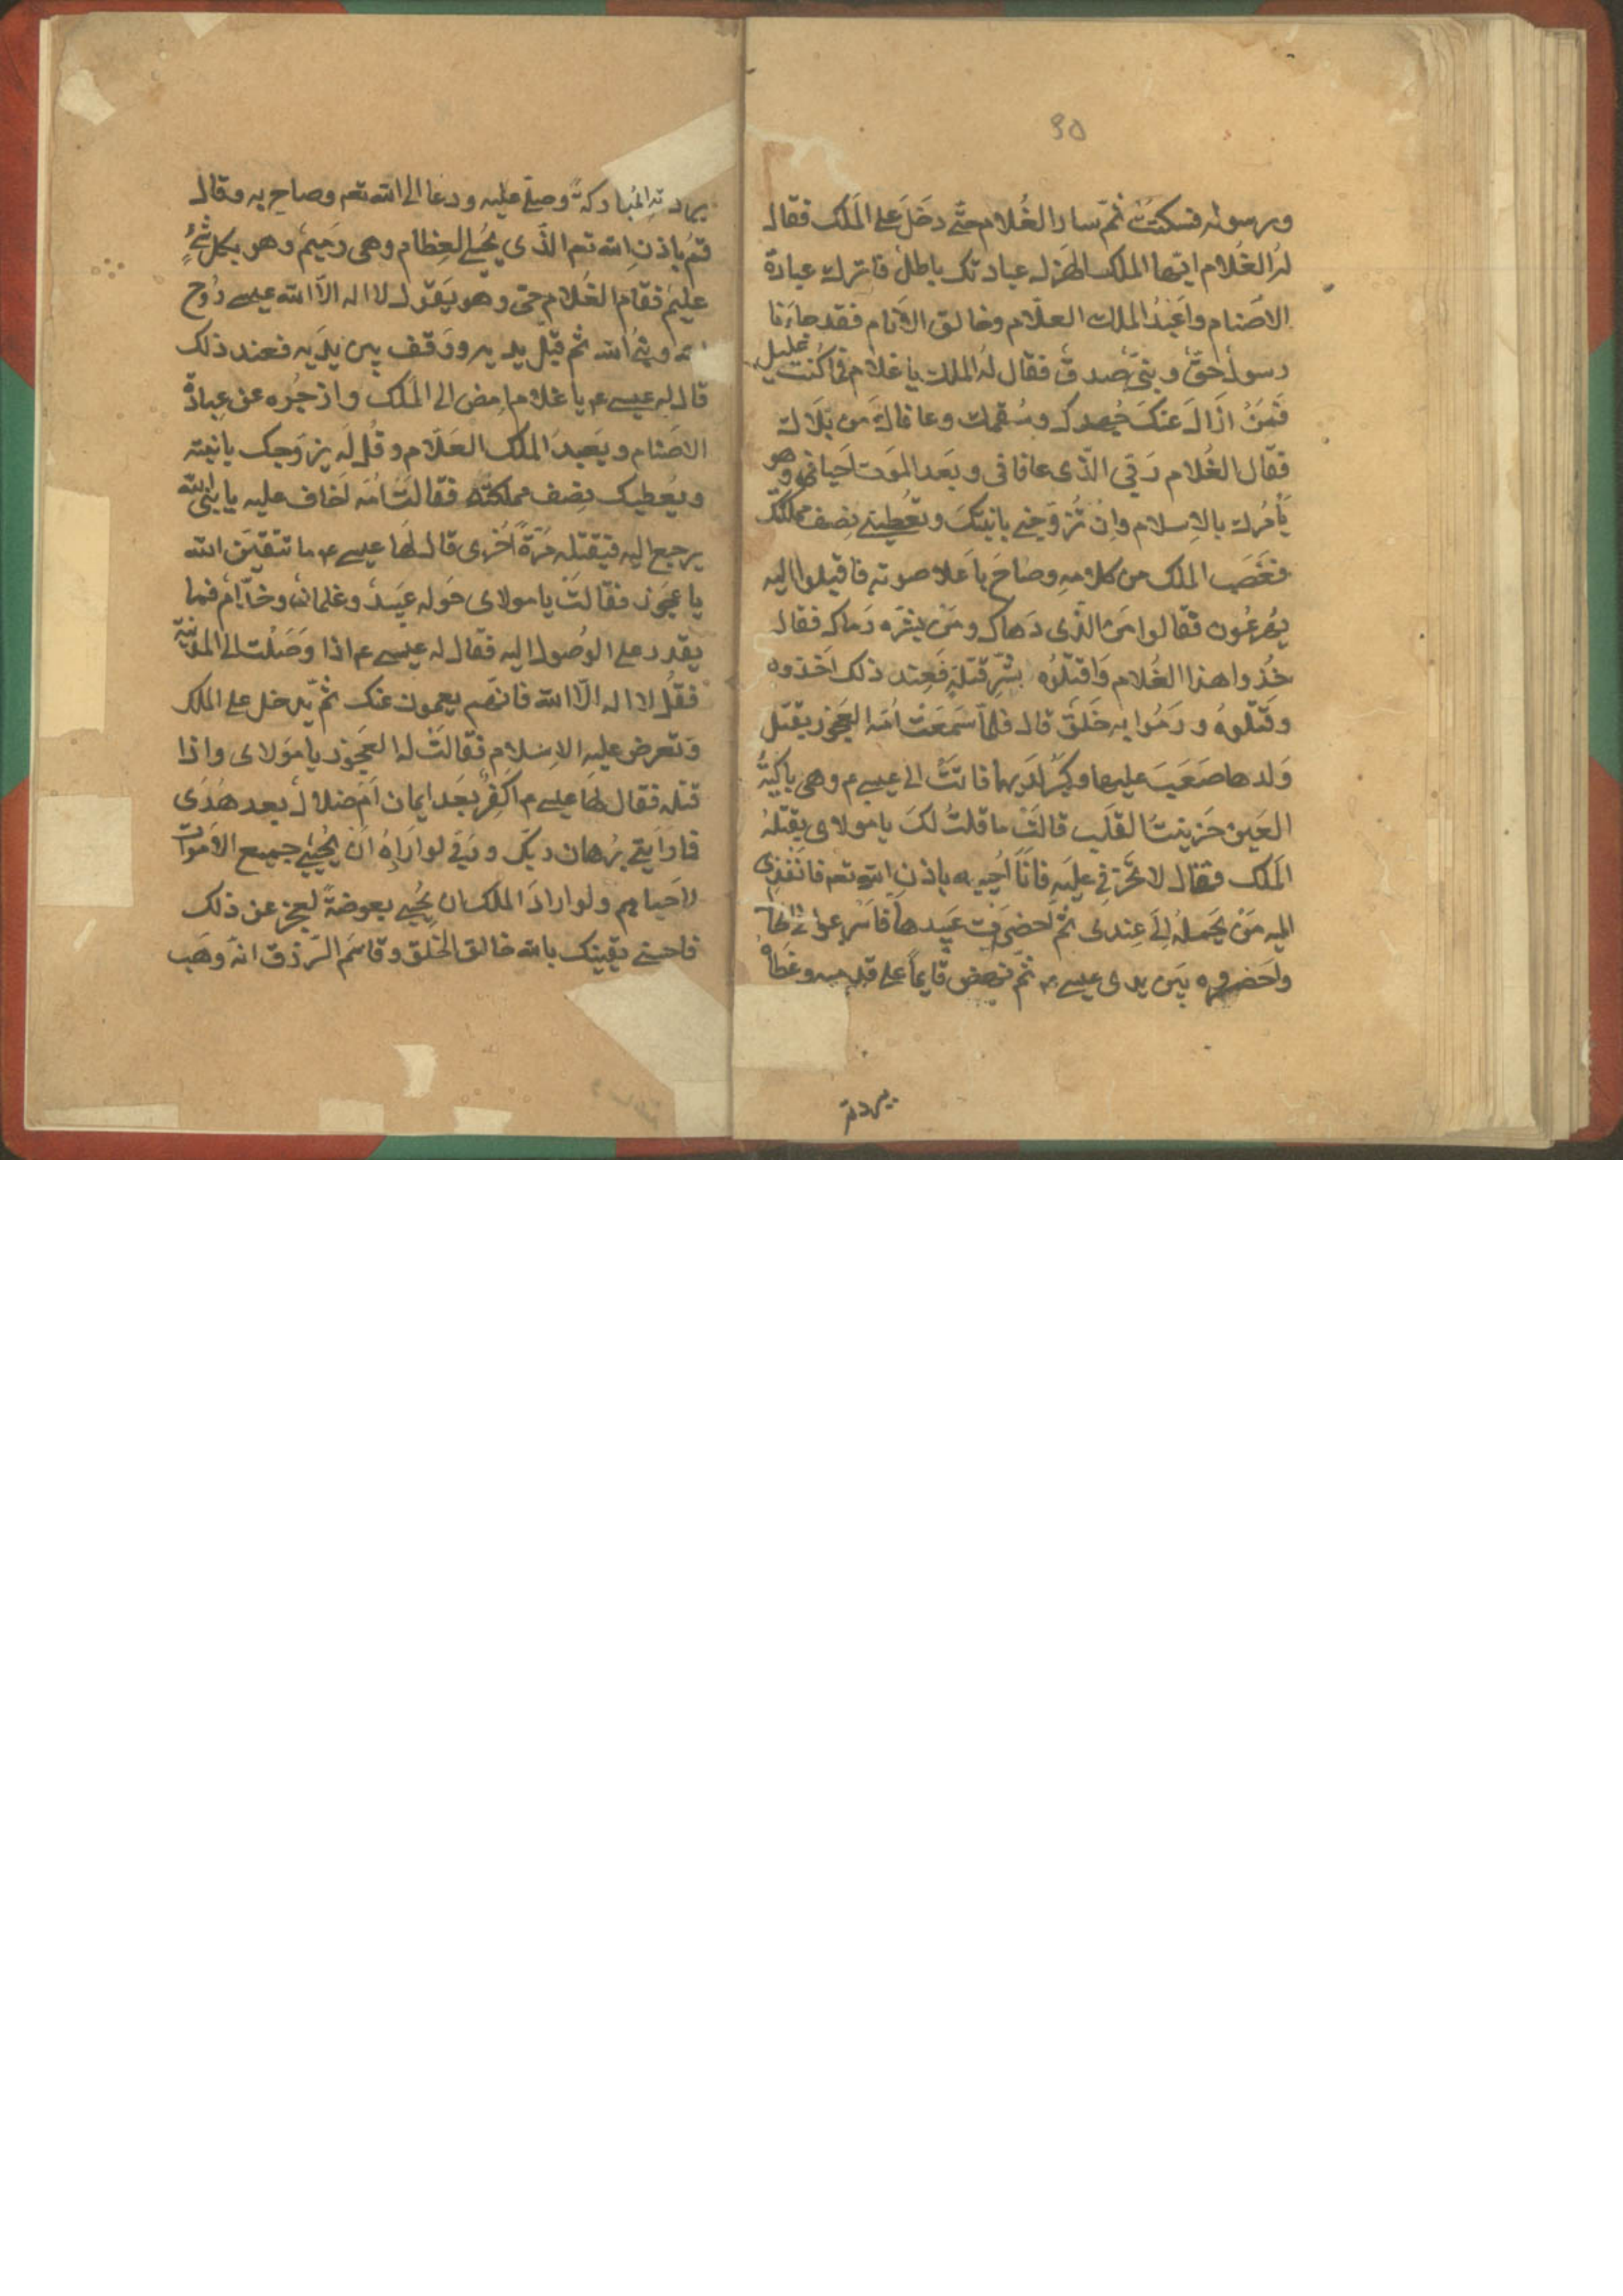 ٩٥
ورسوله فسكتت ثم سار الغُلام حتَّى دخَلَ على المَلك فقال
لهُ الغُلام ايّها الملك الهَزل عبادتك باطلٌ فاترك عبادة
الاَصنام واَعبُدُ الملك العلّام وخالق الاَنام فقد جاءَنا
رسولٌ حقٌ ونبيٌّ صدقٌ فقال لهُ الملك يا غلام فما كُنت عليل
فَمَنْ اَزالَ عنكَ وسُقمك وعافاكَ من بَلاك
فقال الغُلام رَبّي الّذي عافاني وبعَد المَوت اَحياني وهو
يَأمُرك بالاِسلام وان تُزوّجني بابنتكَ وتُعطيني نِصف مملكتك
فغَضَب الملك من كلامهِ وصاحَ باَعلا صوته فاقبلوا اليه
يهرعُون فقالوا مَن الّذي دَهاك ومَن بشرّه رَماك فقال
خُذوا هذا الغُلام وَاقتلُوه بشرّ قتلةٍ فعِند ذلك اَخذوه
وقتلوهُ ورَمُوا به خَلَق قال فلمّا سَمَعَتْ اُمّه العَجُوز بقتل
وَلدها صَعَبَ عليها وكبُرَ لدَيها فاتَتْ الى عيسى ع وهى باكيةُ
العَين حَزينةُ القَلب قالَتْ ما قلتُ لكَ يا مولاى يقتلهُ
المَلك فقال لا تَحزَني عليَه فاَنا اُحييه باذنِ الله تعم فانفذى
اليه مَنْ يَحملهُ اِلَى عِندى ثم اَحضَرت عَبيدها فاَسرعوا
واَحضروه بَين يدى عيسى ع ثم نهض قايماً على قدميه وغطاه
ببردته
ببردتهِ المُباركةً وصلّى عليه ودعا الى الله تعم وصاح به وقال
قمُ باذنِ الله تعم الذّى يُحيى العِظام وهى رَميمٌ وهو بكل شئٍ
عليمٌ فقام الغُلام حىّ وهو يَقول لا اله الاّ الله عيسى رُوح
الله ونبىُّ الله ثم قبّل يديه ووَقف بين يدَيه فعند ذلك
قال له عيسى ع يا غلام اِمض الى المَلك وازجُره عن عبادة
الاصَنام ويَعبدَ الملك العَلّام وقُل لَه يزوّجك بابنته
ويُعطيك نِصف مملكته فقالتُ اُمّه اَخاف عليه يا نبىّ الله
يرجع اليه فيقتله مَرّةً اُخرى قال لَها عيسى ع ما تتقين الله
يا عجوز فقالتْ يا مولاى حَوله عَبيدٌ وغلمانٌ وخدّامٌ فما
يقدر على الوُصول اليه فقال له عيسى ع اذا وَصَلت الى المدينة
فقُل لا اله الّا الله فانهّم يعمون عنك ثم يدخل على الملك
وتعرض عليه الاِسلام فقالَتْ له العَجُوز يا مَولاى واذا
قتله فقال لها عيسى ع اَكفرٌ بعَد ايمان اَم ضلالٌ بعد هُدَى
فارَاَيتي برُهان ربّك ورَبّى لو اَرادُ اَن يُحيي جميع الاَموات
لاَحياهم ولو ارادَ الملك ان يُحيى بعوضةً لعجز عن ذلك
فاحسني يقينك بالله خالق الخَلق وقاسَم الرّزق انهُ وهَب